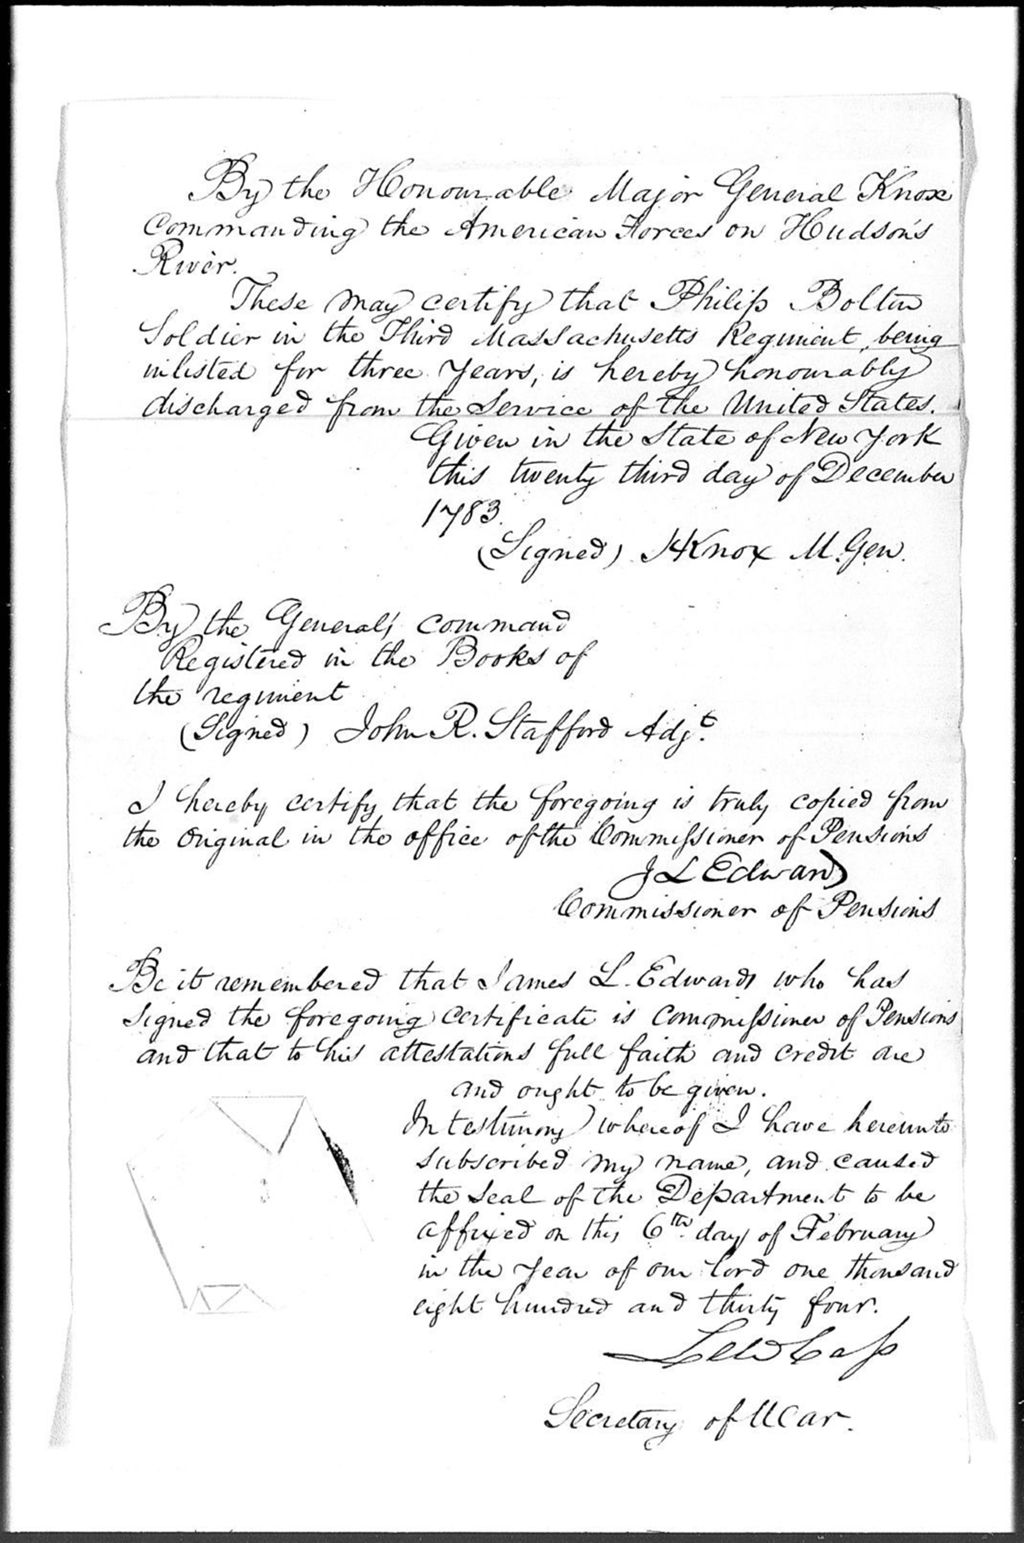 By the Honourable Major General Knox
Commanding the American Forces on Hudson's
River.
These may certify that Philip Bolton
Soldier in the Third Massachusetts Regiment, being
inlisted for three Years, is hereby honourably
discharged from the Service of the United States.
Given in the State of New York
this twenty third day of December
1783.
(Signed) HKnox M.Gen.
By the General's command
Registered in the Books of
the regiment
(Signed) John R. Stafford Adjt.
I hereby certify that the foregoing is truly copied from
the Original in the office of the Commissioner of Pensions
J L Edwards
Commissioner of Pensions
Be it remembered that James L. Edwards who has
signed the foregoing certificate is Commissioner of Pensions
and that to his attestations full faith and credit are
and ought to be given.
In testimony whereof I have hereunto
subscribed my name, and caused
the seal of the Department to be
affixed on this 6th day of February
in the Year of our lord one thousand
eight hundred and thirty four.
Lew Cass
Secretary of War.